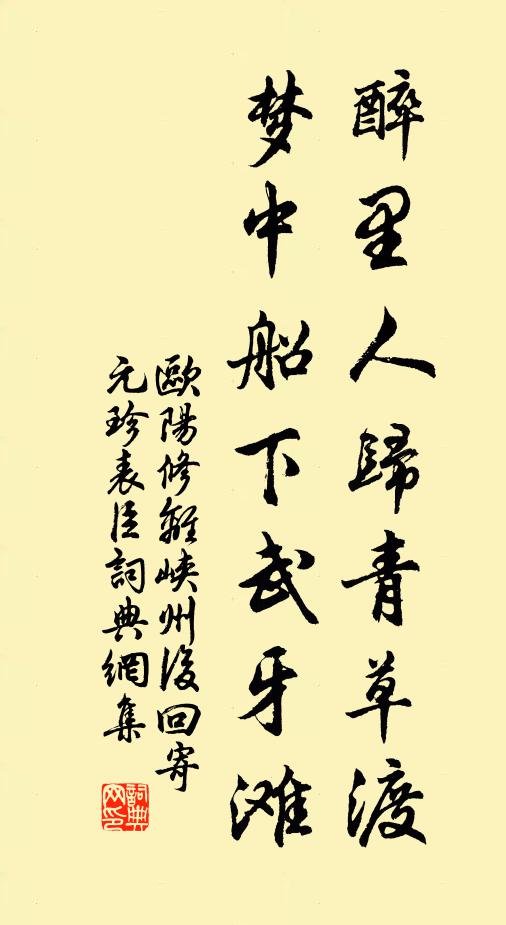 醉里人歸青草渡
梦中船下武牙滩
歐陽修離峽州後回寄
元珍表臣詞典網集
詞典网印